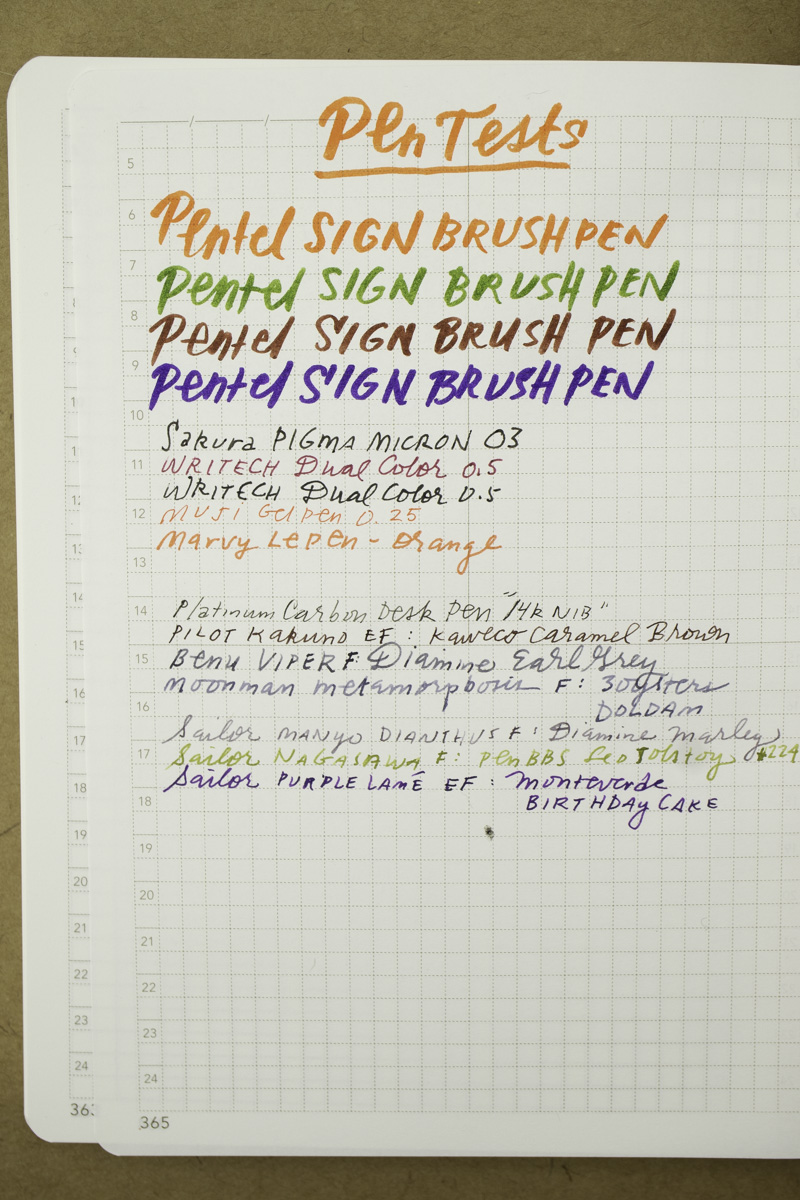 Pen Tests
5
6
Pentel SIGN BRUSH PEN
7
Pentel SIGN BRUSH PEN
8
Pentel SIGN BRUSH PEN
9
Pentel SIGN BRUSH PEN
10
Sakura PIGMA MICRON 03
11
WRITECH Dual Color 0.5
WRITECH Dual Color 0.5
12
MUJI Gel pen 0.25
Marvy Le Pen - Orange
13
14
Platinum Carbon Desk Pen "14k NIB"
PILOT Kakuno EF: Kaweco Caramel Brown
15
Benu VIPER F: Diamine Earl Grey
Moonman metamorphosis F: 3 Oysters
16
DOLDAM
Sailor MANYO DIANTHUS F: Diamine Marley
17
Sailor NAGASAWA F: PenBBS Leo Tolstoy #224
Sailor PURPLE LAMÉ EF: Monteverde
18
BIRTHDAY CAKE
19
20
21
22
23
24
365